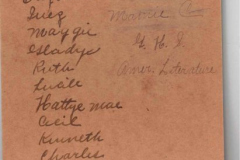 Inez
Mayzie
Gladys
Ruth
Lucile
Hattye Mae
Cecil
Kenneth
Charles
G. H. S.
Amer. Literature